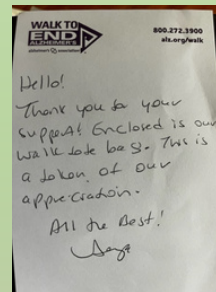 WALK TO
END
ALZHEIMER'S
alzheimer's association
800.272.3900
alz.org/walk
Hello!
Thank you for your
support! Enclosed is our
walk tote bag. This is
a token of our
appreciation.
All the Best!